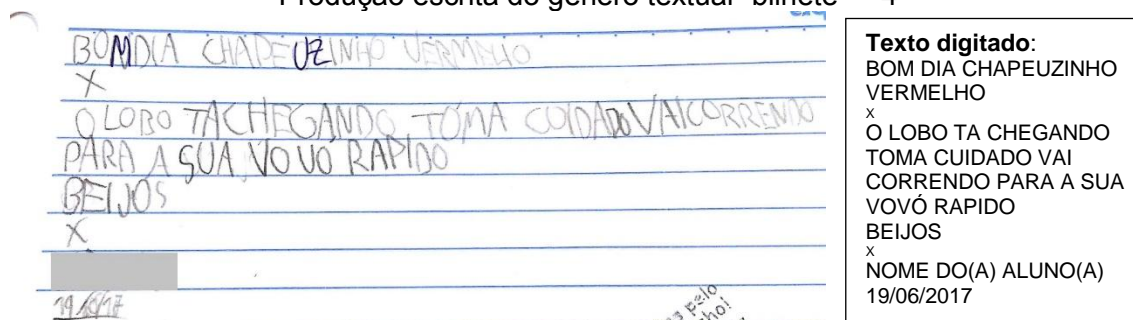 Produção escrita do gênero textual "bilhete"
BOMDIA CHAPEUZINHO VERMELHO
X
O LOBO TACHEGANDO TOMA CUIDADO VAICORRENDO
PARA A SUA VOVO RAPIDO
BEIJOS
X
pelo
Texto digitado:
BOM DIA CHAPEUZINHO
VERMELHO
x
O LOBO TA CHEGANDO
TOMA CUIDADO VAI
CORRENDO PARA A SUA
VOVÓ RAPIDO
BEIJOS
x
NOME DO(A) ALUNO(A)
19/06/2017